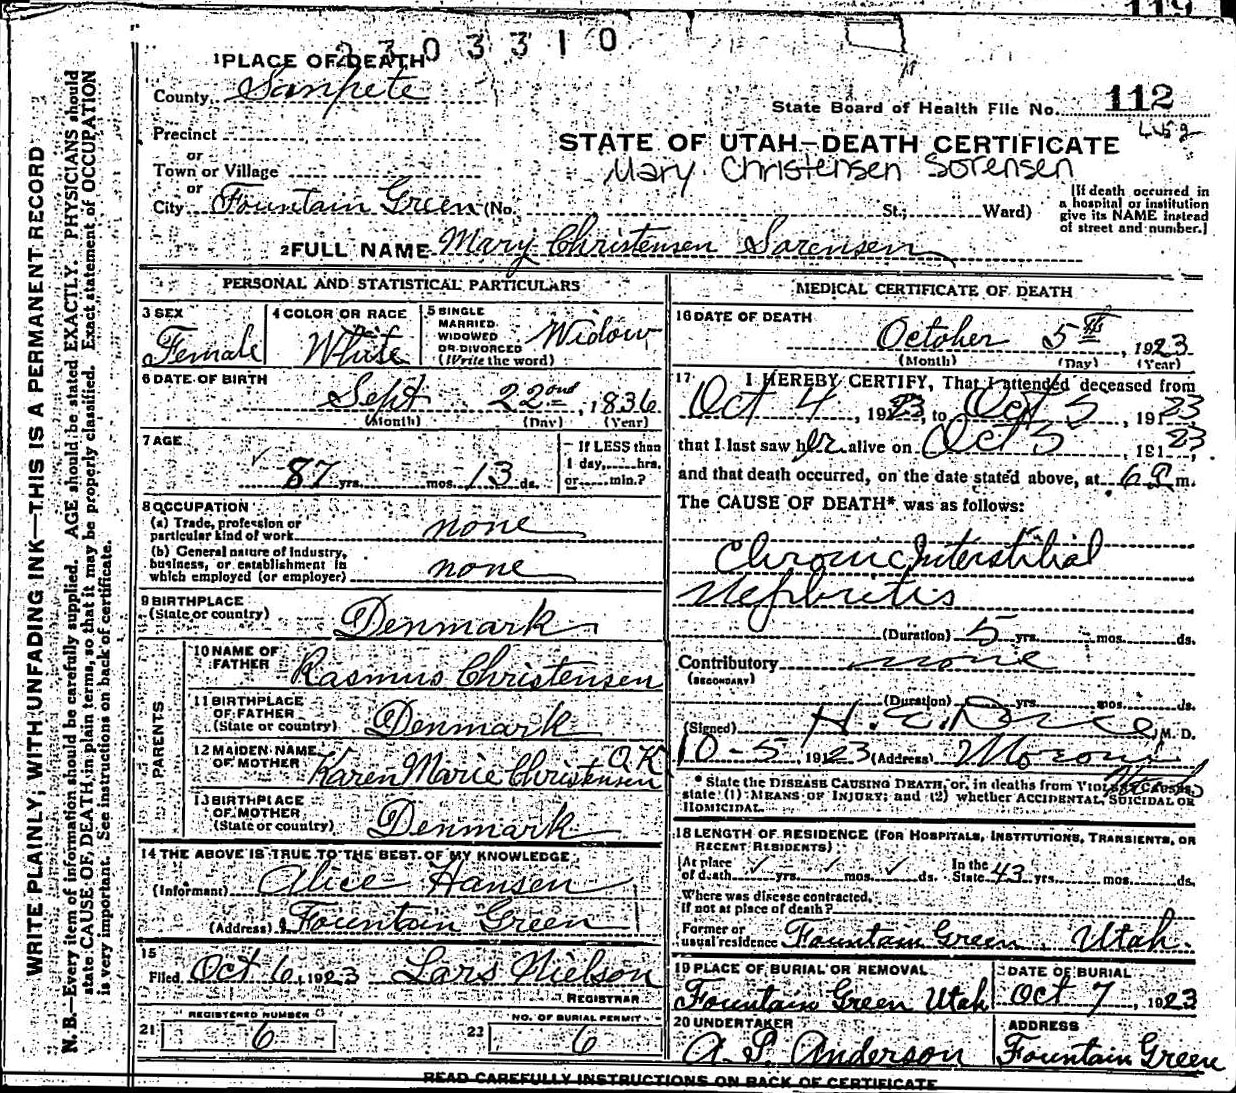 119
2303310
1 PLACE OF DEATH
County Sanpete
State Board of Health File No. 112
Precinct
STATE OF UTAH—DEATH CERTIFICATE
or
Town or Village
Mary Christensen Sorensen
or
City Fountain Green (No. St.; Ward)
[If death occurred in
a hospital or institution
give its NAME instead
of street and number.]
2 FULL NAME Mary Christensen Sorensen
PERSONAL AND STATISTICAL PARTICULARS
3 SEX
Female
4 COLOR OR RACE
White
5 SINGLE
MARRIED
WIDOWED
OR DIVORCED
(Write the word)
Widow
6 DATE OF BIRTH
Sept 22nd, 1836
(Month) (Day) (Year)
7 AGE
87 yrs. mos. 13 ds.
If LESS than
1 day, hrs.
or min.?
8 OCCUPATION
(a) Trade, profession or
particular kind of work none
(b) General nature of Industry,
business, or establishment in
which employed (or employer) none
9 BIRTHPLACE
(State or country) Denmark
PARENTS
10 NAME OF
FATHER Rasmus Christensen
11 BIRTHPLACE
OF FATHER
(State or country) Denmark
12 MAIDEN NAME
OF MOTHER Karen Marie Christensen OK
13 BIRTHPLACE
OF MOTHER
(State or country) Denmark
14 THE ABOVE IS TRUE TO THE BEST OF MY KNOWLEDGE
(Informant) Alice Hansen
(Address) Fountain Green
15
Filed Oct 6, 1923 Lars Nielson
REGISTRAR
21 REGISTERED NUMBER
6
22 NO. OF BURIAL PERMIT
6
MEDICAL CERTIFICATE OF DEATH
16 DATE OF DEATH
October 5th, 1923
(Month) (Day) (Year)
17 I HEREBY CERTIFY, That I attended deceased from
Oct 4, 1923, to Oct 5, 1923
that I last saw her alive on Oct 5, 1923,
and that death occurred, on the date stated above, at 6 a m.
The CAUSE OF DEATH* was as follows:
Chronic Interstitial
Nephritis
(Duration) 5 yrs. mos. ds.
Contributory none
(SECONDARY)
(Duration) yrs. mos. ds.
(Signed) M. D.
10-5 1923 (Address) Moroni
Utah
* State the DISEASE CAUSING DEATH, or, in deaths from VIOLENT CAUSES,
state (1) MEANS OF INJURY; and (2) whether ACCIDENTAL, SUICIDAL OR
HOMICIDAL.
18 LENGTH OF RESIDENCE (FOR HOSPITALS, INSTITUTIONS, TRANSIENTS, OR
RECENT RESIDENTS)
At place
of death yrs. mos. ds. In the
State 43 yrs. mos. ds.
Where was disease contracted,
If not at place of death?
Former or
usual residence Fountain Green Utah.
19 PLACE OF BURIAL OR REMOVAL
Fountain Green Utah
DATE OF BURIAL
Oct 7, 1923
20 UNDERTAKER
A. P. Anderson
ADDRESS
Fountain Green
READ CAREFULLY INSTRUCTIONS ON BACK OF CERTIFICATE
WRITE PLAINLY, WITH UNFADING INK—THIS IS A PERMANENT RECORD
N. B.—Every item of information should be carefully supplied. AGE should be stated EXACTLY. PHYSICIANS should
state CAUSE OF DEATH, in plain terms, so that it may be properly classified. Exact statement of OCCUPATION
is very important. See instructions on back of certificate.